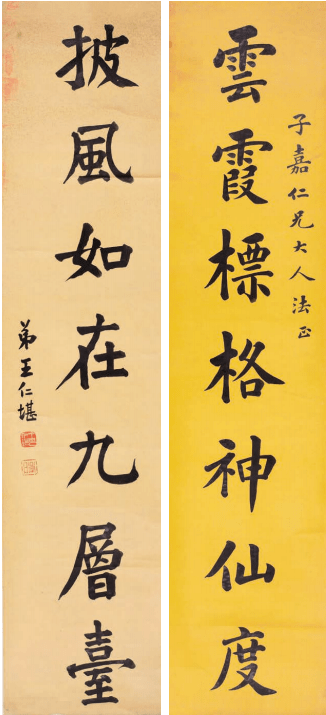 子嘉仁兄大人法正
雲霞標格神仙度
披風如在九層臺
弟王仁堪